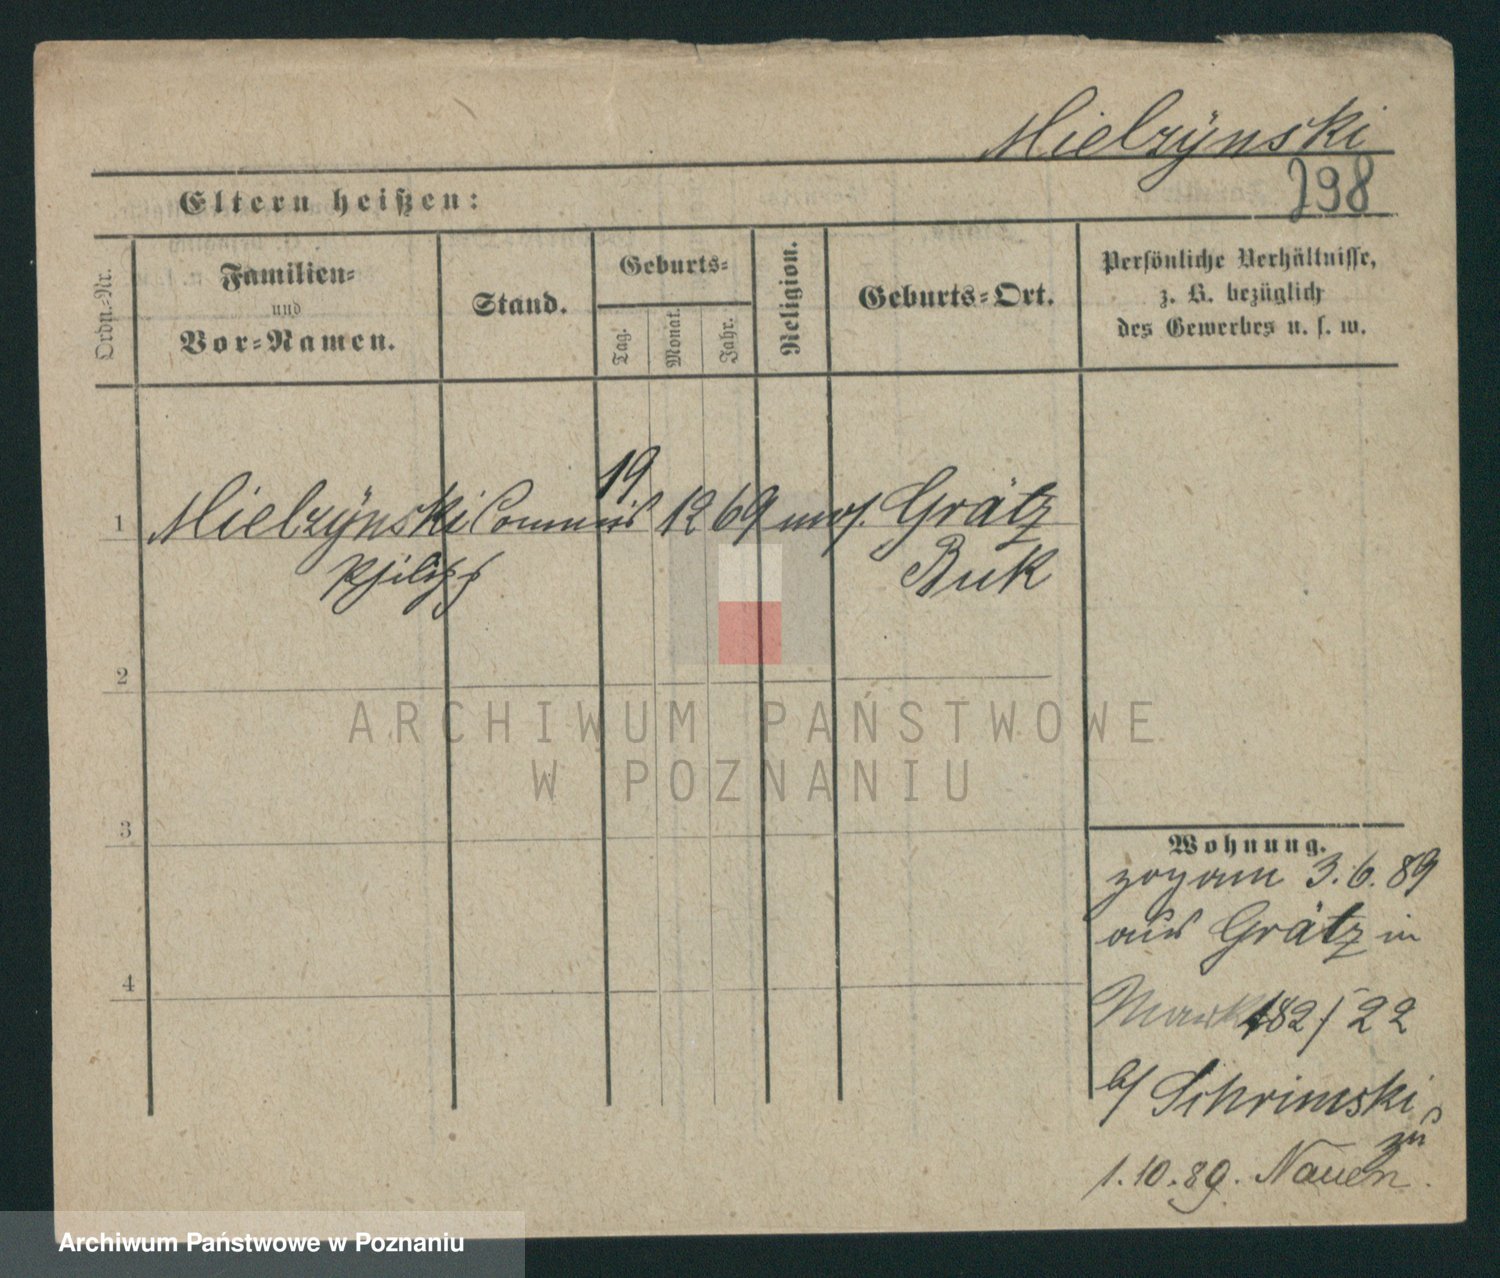 Mielzÿnski
298
Eltern heißen:
Ordn.-Nr.
Familien-
und
Vor-Namen.
Stand.
Geburts-
Tag.
Monat.
Jahr.
Religion.
Geburts-Ort.
Persönliche Verhältnisse,
z. B. bezüglich
des Gewerbes u. s. w.
1 Mielzÿnski Commis 19. 12 69 mos. Grätz
Philipp Buk
2
ARCHIWUM PAŃSTWOWE
W POZNANIU
3
4
Wohnung.
zog am 3.6.89
aus Grätz in
Markt 82/22
b/ Schrimski
zu
1.10.89. Nauen.
Archiwum Państwowe w Poznaniu